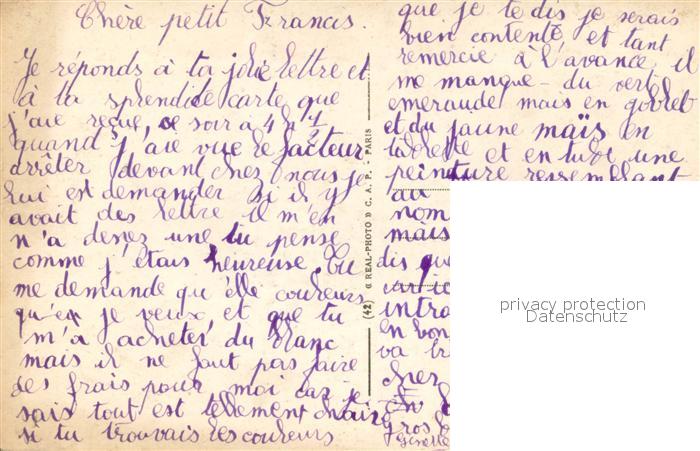 Chère petit Francis.
Je réponds à ta jolie lettre et
à ta splendide carte que
j'aie reçue, ce soir à 4 h 1/2
quand j'aie vue le facteur
arrêter devant chez nous je
lui est demander si il y
avait des lettre il m'en
n'a donez une tu pense
comme j'étais heureuse. Tu
me demande qu'elle couleurs
qu'en je veux et que tu
m'a acheter du blanc
mais il ne faut pas faire
des frais pour moi car je
sais tout est tellement chair
si tu trouvais les couleurs
que je te dis je serais
bien contente et tant
remercie à l'avance il
me manque du vert
emeraude mais en godet
et du jaune maïs en
et en tube une
peinture ressemblant
au
nom
mais
dis que
intro
en bon
va
chez
gros
Ginette
(42) REAL-PHOTO C. A. P. - PARIS
privacy protection
Datenschutz